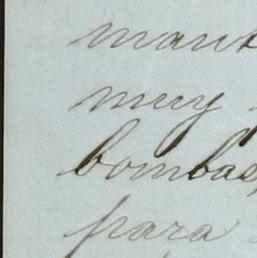 mant
muy
bombas,
para